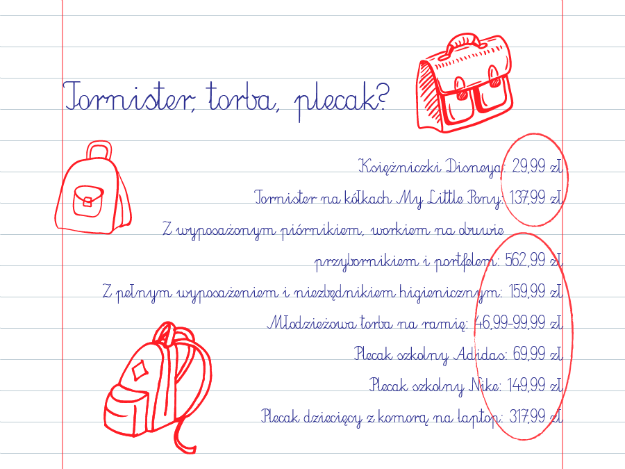 Tornister, torba, plecak?
Księżniczki Disneya: 29,99 zł
Tornister na kółkach My Little Pony: 137,99 zł
Z wyposażonym piórnikiem, workiem na obuwie
przybornikiem i portfelem: 562,99 zł
Z pełnym wyposażeniem i niezbędnikiem higienicznym: 159,99 zł
Młodzieżowa torba na ramię: 46,99-99,99 zł
Plecak szkolny Adidas: 69,99 zł
Plecak szkolny Nike: 149,99 zł
Plecak dziecięcy z komorą na laptop: 317,99 zł